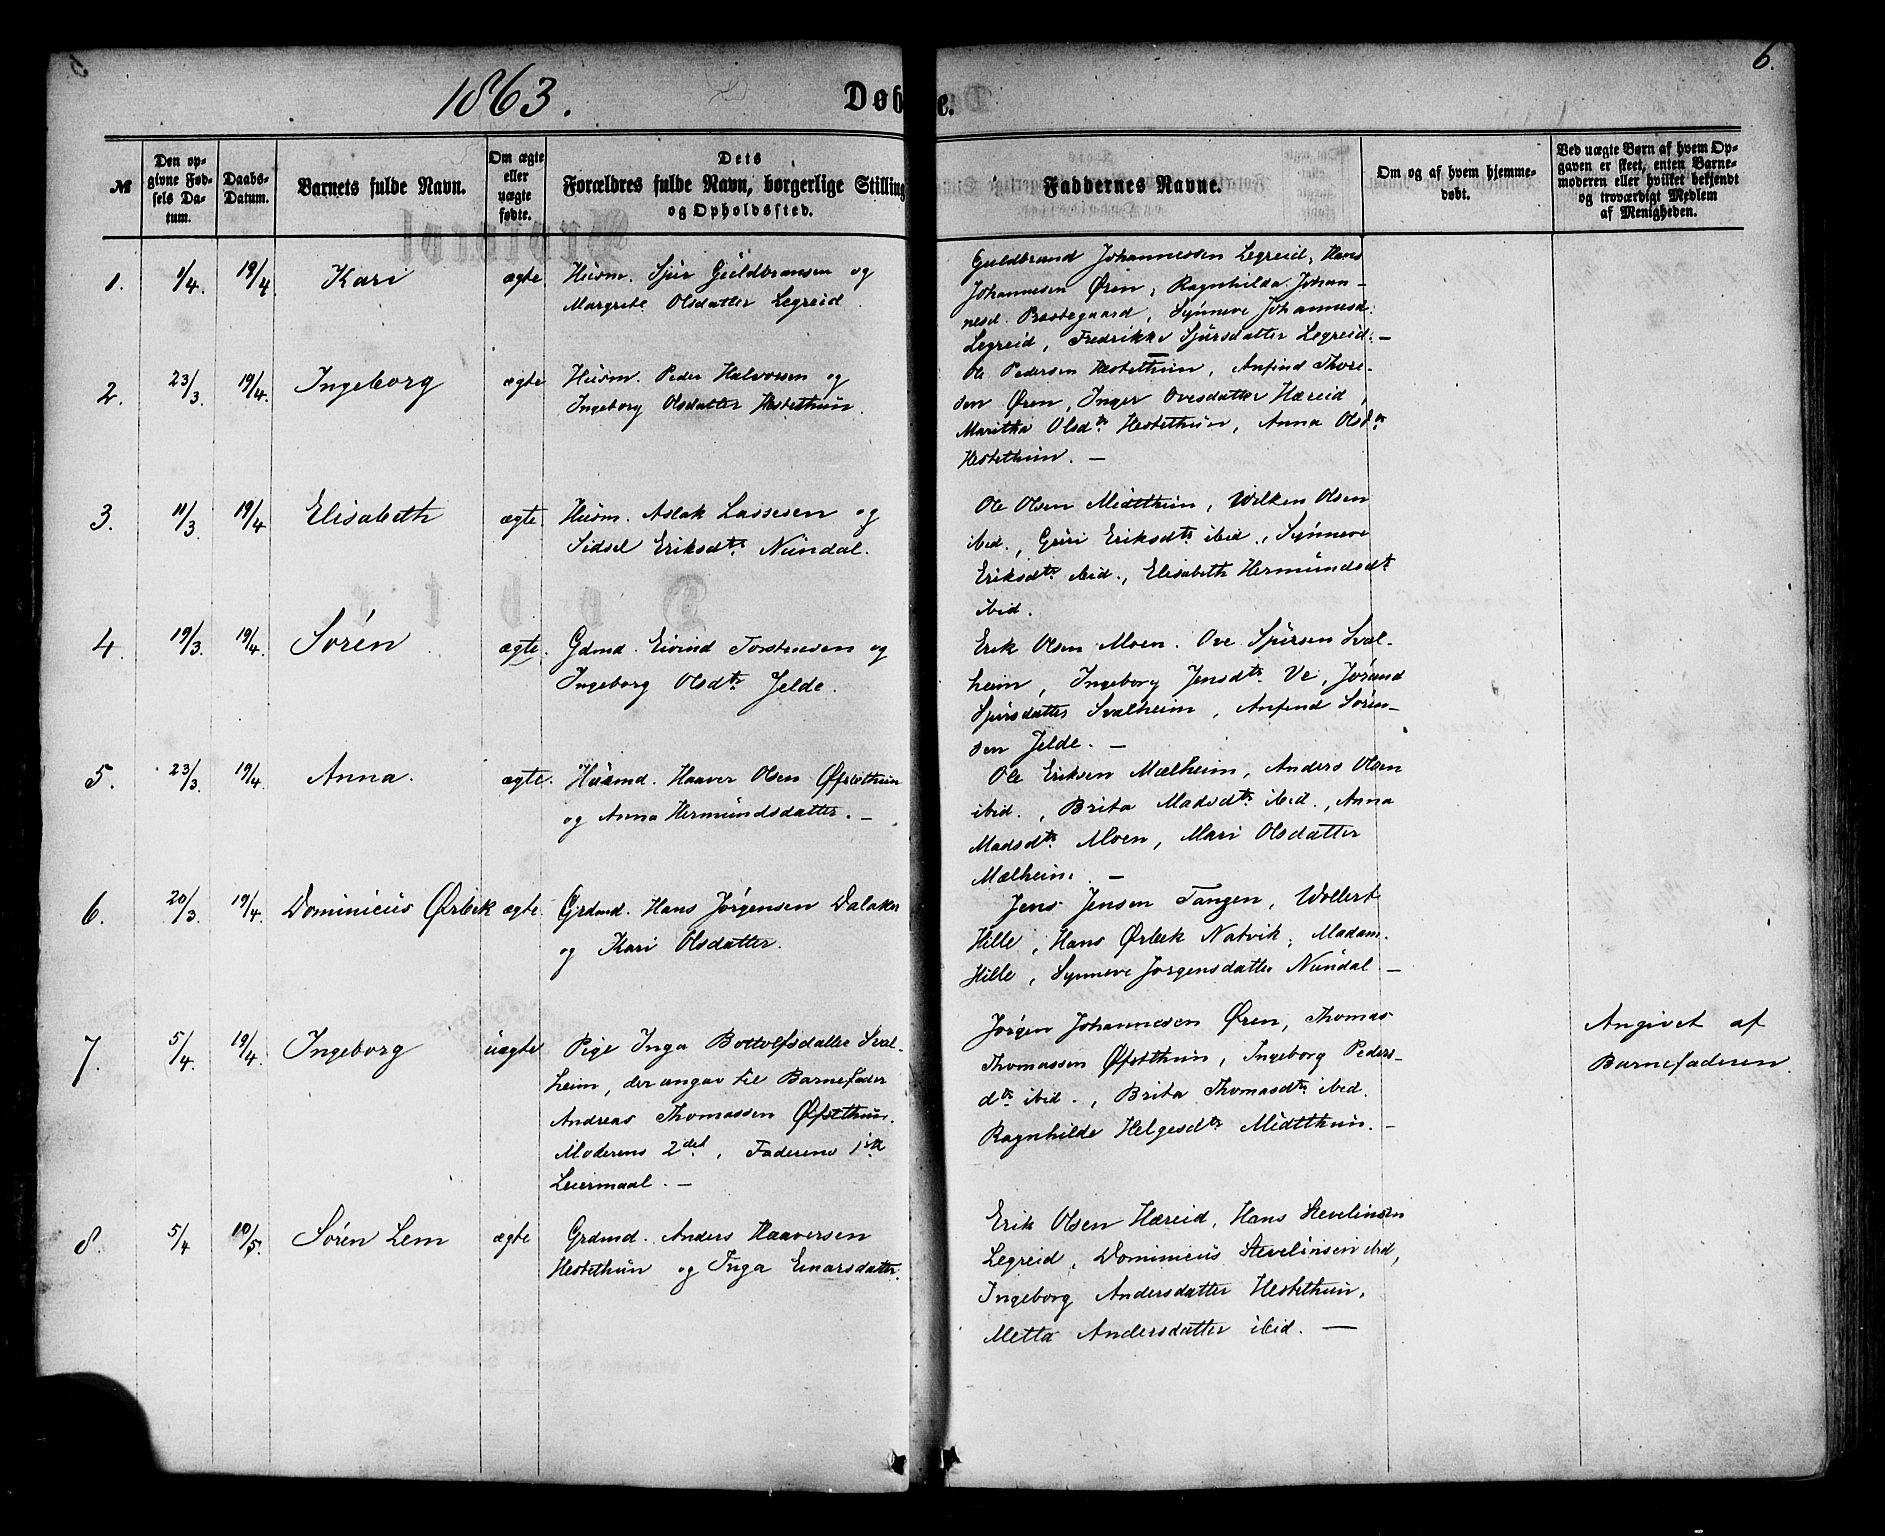 6.
1863.
Døbte.
№
Den opgivne Fødsels Datum.
Daabs-Datum.
Barnets fulde Navn.
Om ægte eller uægte fødte.
Dets Forældres fulde Navn, borgerlige Stilling og Opholdssted.
Faddernes Navne.
Om og af hvem hjemmedøbt.
Ved uægte Børn af hvem Opgaven er skeet, enten Barnemoderen eller hvilket bekjendt og troværdigt Medlem af Menigheden.
1. 1/4. 19/4 Kari ægte Husm. Sjur Guldbransen og
Margrete Olsdatter Legreid.
Guldbrand Johannessen Legreid, Hans
Johannesen Øren, Ragnhilda Johan-
nesd. Prestegaard, Synneve Johannesd.
Legreid, Fredrikke Sjursdatter Legreid. —
2. 23/3. 19/4. Ingeborg ægte Husm. Peder Halvorsen og
Ingeborg Olsdatter Hestethun.
Ole Pedersen Hestethun, Anfind Thore-
sen Øren, Inger Ovesdatter Hæreid,
Maritha Olsdtr Hestethun, Anna Olsdtr
Hestethun. —
3. 11/3. 19/4 Elisabeth ægte. Husm. Aslak Lassesen og
Sidsel Eriksdtr. Nundal.
Ole Olsen Midtthun, Wilken Olsen
ibid., Guri Eriksdtr ibid., Synneve
Eriksdtr ibid., Elisabeth Hermundsdtr
ibid.
4. 19/3. 19/4. Sørén ægte. Gdmd. Eivind Torstensen og
Ingeborg Olsdtr Jelde.
Erik Olsen Moen. Ove Sjursen Sval-
heim, Ingeborg Jensdtr. Ve, Jørand
Sjursdatter Svalheim, Anfind Søren-
sen Jelde. —
5. 23/3. 19/4. Anna. ægte. Husmd. Haaver Olsen Øfstethun
og Anna Hermundsdatter. —
Ole Eriksen Mælheim, Anders Olsen
ibid., Brita Madsdtr ibid., Anna
Madsdtr. Moen, Mari Olsdatter
Mælheim. —
6. 20/3. 19/4. Dominicus Ørbek ægte. Grdmd. Hans Jørgensen Dalaker
og Kari Olsdatter.
Jens Jensen Tangen, Wollert
Hille, Hans Ørbek Natvik, Madam
Hille, Synneve Jørgensdatter Nundal —
7. 5/4. 19/4. Ingeborg uægte Pige Inga Bottolfsdatter Sval-
heim, der angav til Barnefader
Andreas Thomassen Øfstethun.
Moderens 2det, Faderens 1ste
Leiermaal. —
Jørgen Johannesen Øren, Thomas
Thomassen Øfstthun, Ingeborg Peders-
dtr ibid., Brita Thomasdtr ibid.
Ragnhilde Helgesdtr Midtthun. —
Angivet af
Barnefaderen.
8. 5/4 10/5. Sørén Lem ægte Grdmd. Anders Haaversen
Hestethun og Inga Einarsdatter.
Erik Olsen Hæreid, Hans Stevelinsen
Legreid, Dominicus Stevelinsen ibid,
Ingeborg Andersdatter Hestethun,
Metta Andersdatter ibid. —